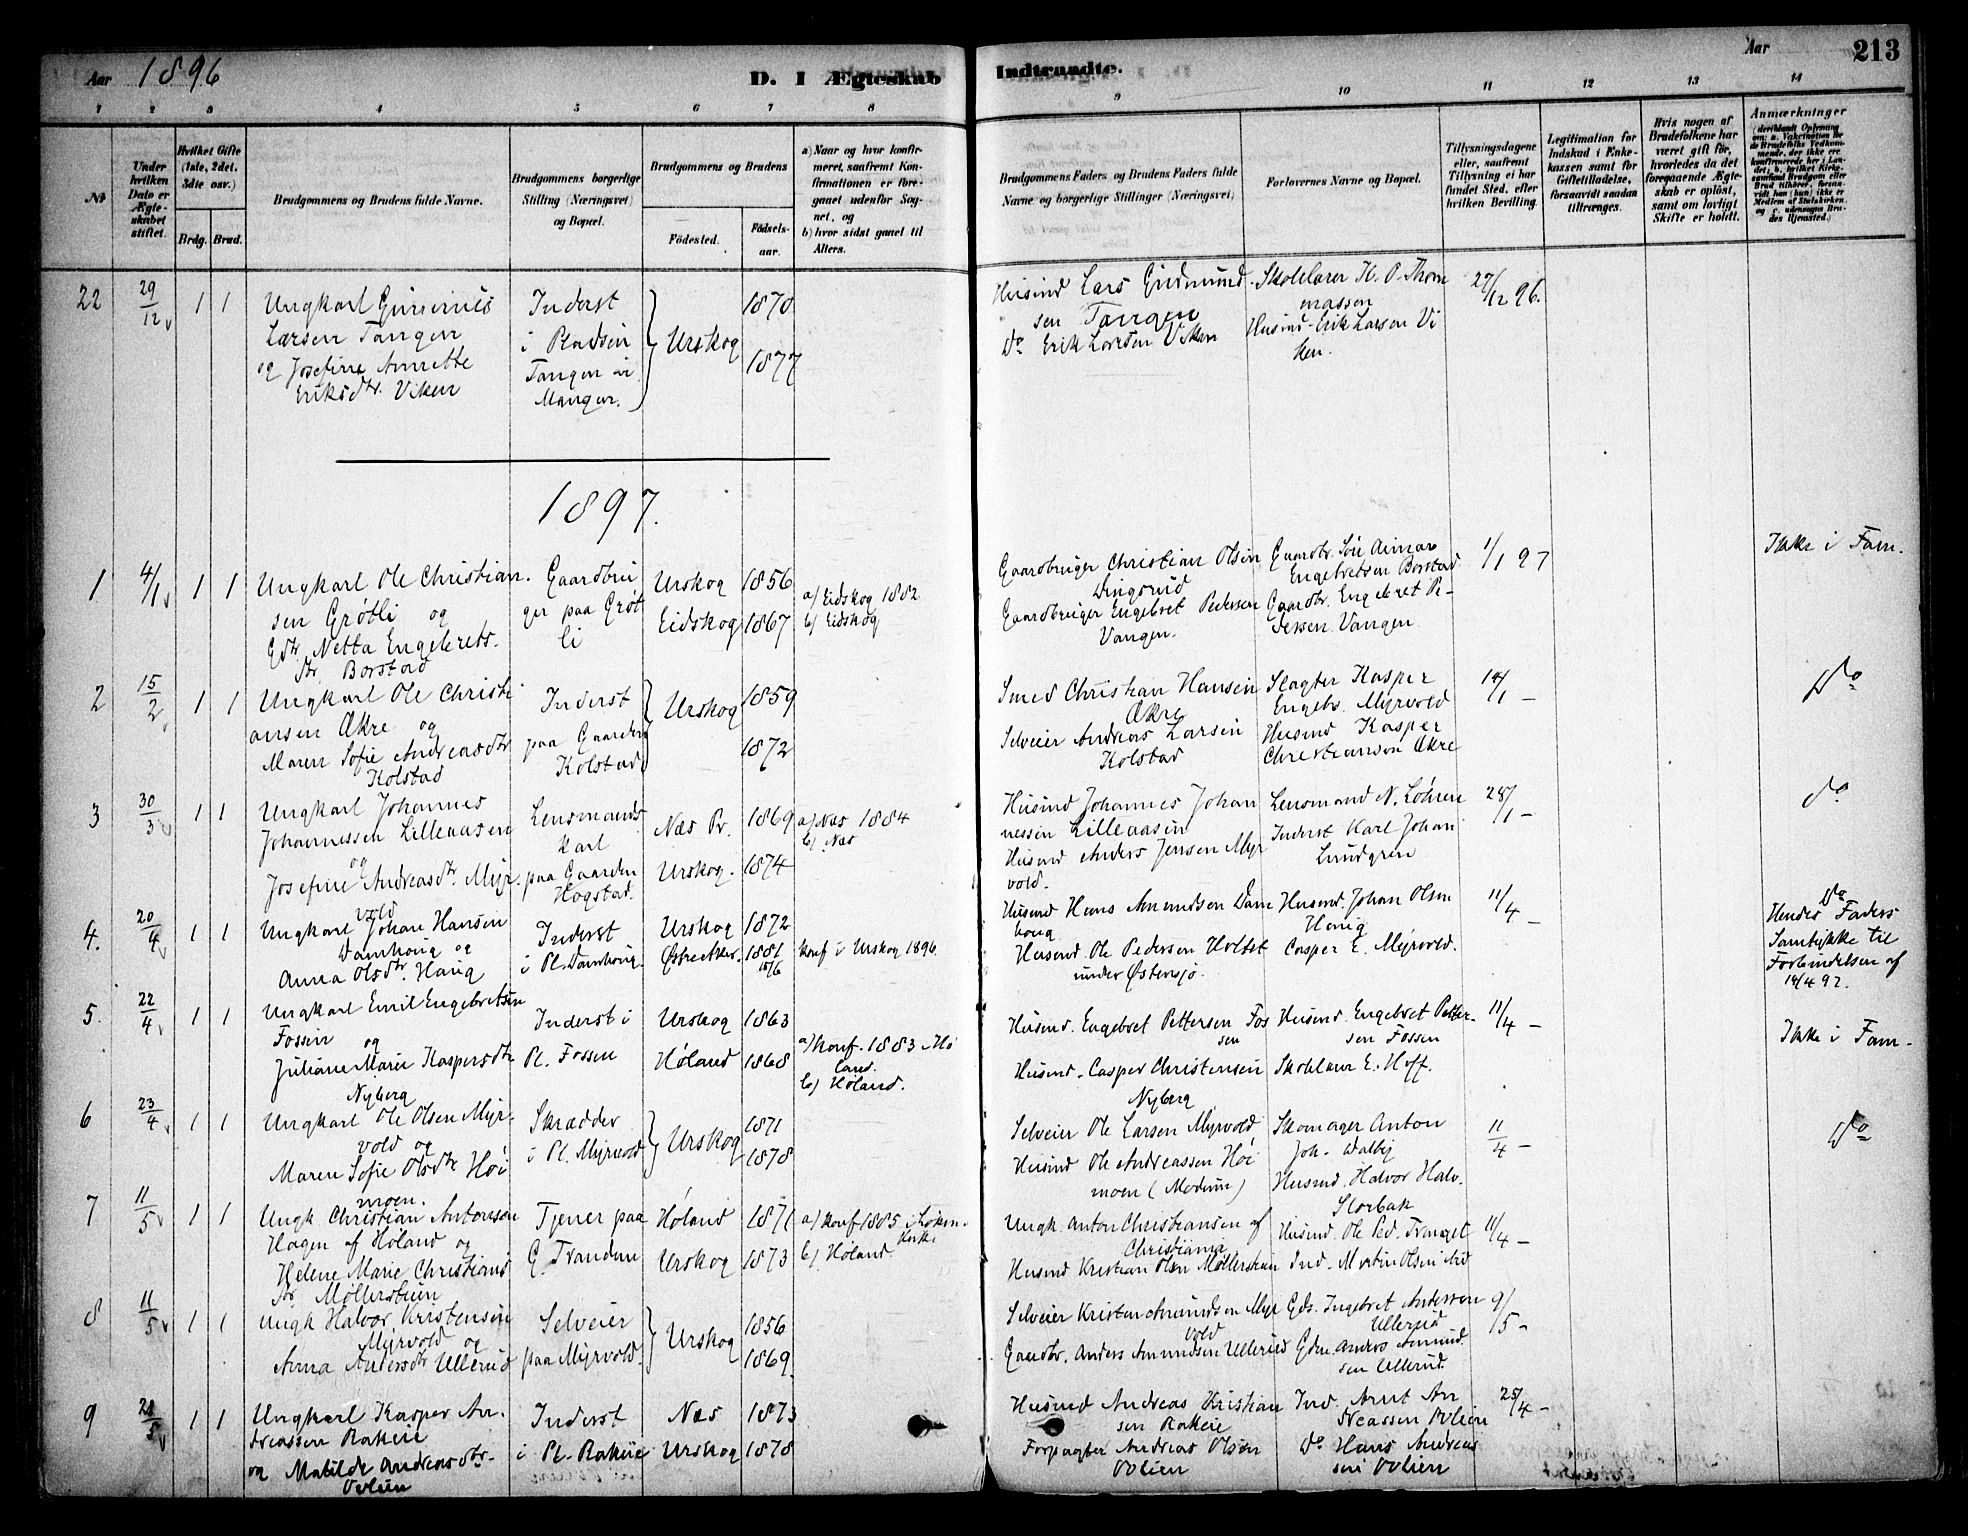 Aar 1896
D. I Ægteskab
Indtraadte.
Aar 213
1 2 3 4 5 6 7 8 9 10 11 12 13 14
No
Under hvilken Dato er Ægteskabet stiftet.
Hvilket Gifte (1ste, 2det, 3die osv.)
Brdg. Brud.
Brudgommens og Brudens fulde Navne.
Brudgommens borgerlige Stilling (Næringsvei) og Bopæl.
Brudgommens og Brudens
Fødested. Fødselsaar.
a) Naar og hvor konfirmeret, saafremt Konfirmationen er foregaaet udenfor Sognet, og
b) hvor sidst gaaet til Alters.
Brudgommens Faders og Brudens Faders fulde Navne og borgerlige Stillinger (Næringsvei)
Forlovernes Navne og Bopæl.
Tillysningsdagene eller, saafremt Tillysning ei har fundet Sted, efter hvilken Bevilling.
Legitimation for Indskud i Enkekassen samt for Giftetilladelse, forsaavidt saadan tiltrænges.
Hvis nogen af Brudefolkene har været gift før, hvorledes da det foregaaende Ægteskab er opløst, samt om lovligt Skifte er holdt.
Anmærkninger
22 29/12 1 1
Ungkarl
Larsen Tangen
og Josefine Annette
Eriksdtr. Viken
Inderst
i
Tangen
Mangen.
Urskog
1870
1877
Husmd Lars Gudmund-
sen Tangen
Do Erik Larsen Viken
Skolelærer H. P. Thom
massen
Husmd Erik Larsen Vi
ken.
27/12 96.
1897.
1 4/1 1 1
Ungkarl Ole Christian-
sen Grøtli og
Gdtr. Netta Engebrets-
dtr. Borstad
Gaardbru
ger paa Grøt
li
Urskog 1856
Eidskog 1867
a) Eidskog 1882
b) Eidskog
Gaardbruger Christian Olsen
Dingsrud
Gaardbruger Engebret Pedersen
Vangen.
Gaardbr.
Engebretsen Borstad
Gaardbr. Engebret Pe-
dersen Vangen
1/1 97
Ikke i Fam.
2 15/2 1 1
Ungkarl Ole Christi
ansen Økre og
Maren Sofie Andreasdtr
Kolstad
Inderst
paa Gaarden
Kolstad
Urskog
1859
1872
Smed Christian Hansen
Økre
Selveier Andreas Larsen
Kolstad
Slagter Kasper
Engebr. Myrvold
Husmd Kasper
Christiansen Økre
Do
3 30/3 1 1
Ungkarl Johannes
Johannessen Lilleaasen
og
Josefine Andreasdtr. Myr-
vold
Lensmands
karl
paa Gaarden
Hogstad.
Næs Pr. 1869
Urskog. 1874
a) Næs 1884
b) Næs
Husmd Johannes Johan
nessen Lilleaasen
Husmd Anders Jensen Myr
vold.
Lensmand N. Løhren
Inderst Karl Johan
Lundgren
28/1 -
do
4. 20/4 1 1
Ungkarl Johan Hansen
Damhoug og
Anna Olsdtr. Haug
Inderst
i Pl. Damhoug.
Urskog 1872
1881
Konf i Urskog 1896.
Husmd Hans Amundsen Dam
houg
Husmd. Ole Pedersen Holtet
under Østensjø.
Husmd. Johan Olsen
Houg
Casper E. Myrvold.
11/4 -
Do
Hendes Faders
Samtykke til
Forbindelsen af
14/4 97.
5. 22/4 1 1
Ungkarl Emil Engebretsen
Fossen og
Juliane Marie Kaspersdtr
Nyberg
Inderst i
Pl. Fossen
Urskog 1863
Høland 1868
a) Konf. 1883 i Hø
land.
b) Høland.
Husmd. Engebret Pettersen Fos
sen
Husmd. Casper Christensen
Nyberg
Husmd Engebret Petter-
sen Fossen
Skolelærer E. Hoff.
11/4 -
Ikke i Fam-
6 23/4 1 1
Ungkarl Ole Olsen Myr-
vold og
Maren Sofie Olsdtr Høi
moen.
Skrædder
i Pl. Myrvold
Urskog
1871
1878
Selveier Ole Larsen Myrvold
Husmd Ole Andreassen Høi
moen
Skomager Anton
Joh. Dalby
Husmd. Halvor Halv.
Storbak
11/4 -
Do
7 11/5 1 1
Ungk Christian Antonsen
Hagen af Høland og
Helene Marie Christians
dtr. Møllerstuen
Tjener paa
G. Trandem
Høland 1871
Urskog 1873
a) Konf 1885 i Løken
Kirke
b) Høland.
Ungk. Anton Christiansen af
Christiania
Husmd Kristian Olsen Møllerstuen
Husmd. Ole Ped. Tranget
Ind. Martin Olsen
11/4 -
8 11/5 1 1
Ungk Halvor Kristensen
Myrvold og
Anna Andersdtr Ullerud
Selveier
paa Myrvold.
Urskog
1856
1869.
Selveier Kristen Amundsen Myr
vold
Gaardbr. Anders Amundsen Ullerud
Gds. Ingebret Andersen
Ullerud
Gdm. Anders Amund
sen Ullerud.
9/5 -
9 1 1
Ungkarl Kasper An-
dreassen Rakeie
og Matilde Andreasdtr-
Ovlien
Inderst
i Pl. Rakeie
Næs 1873
Urskog 1878
Husmd Andreas Kristian
sen Rakeie
Forpagter Andreas Olsen
Ovlien
Ind. Arnt An
dreassen Ovlien
Do Hans Andreas
sen Ovlien
25/4 -